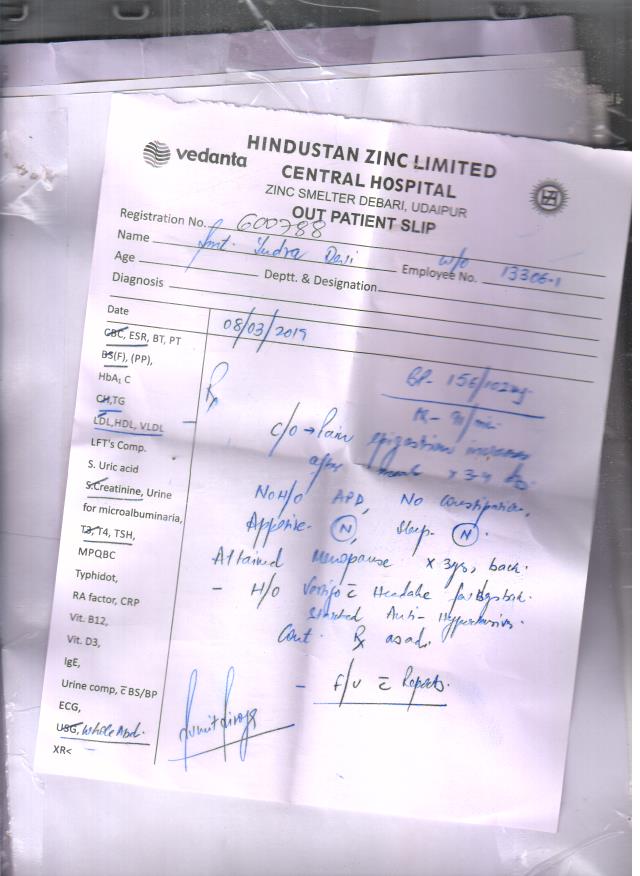 vedanta
HINDUSTAN ZINC LIMITED
CENTRAL HOSPITAL
ZINC SMELTER DEBARI, UDAIPUR
OUT PATIENT SLIP
Registration No. 600788
Name Smt. Indra Devi w/o Employee No. 13306-1
Age Deptt. & Designation
Diagnosis
Date 08/03/2019
CBC, ESR, BT, PT
BS(F), (PP),
HbA1 C
CH,TG
LDL,HDL, VLDL
LFT's Comp.
S. Uric acid
S.Creatinine, Urine
for microalbuminaria,
T3, T4, TSH,
MPQBC
Typhidot,
RA factor, CRP
Vit. B12,
Vit. D3,
IgE,
Urine comp, c̅ BS/BP
ECG,
USG, Whole Abd.
XR<
BP- 156/102
Rx
c/o → Pain epigastrium increases
after meals x 3-4
No H/o APD, No Constipation,
Appetite- N, Sleep- N.
Attained Menopause x 3ys, back.
- H/o Vertigo c̅ Headache for
Started Anti-Hypertensives.
Cont. Rx as ad.
- f/u c̅ Reports.